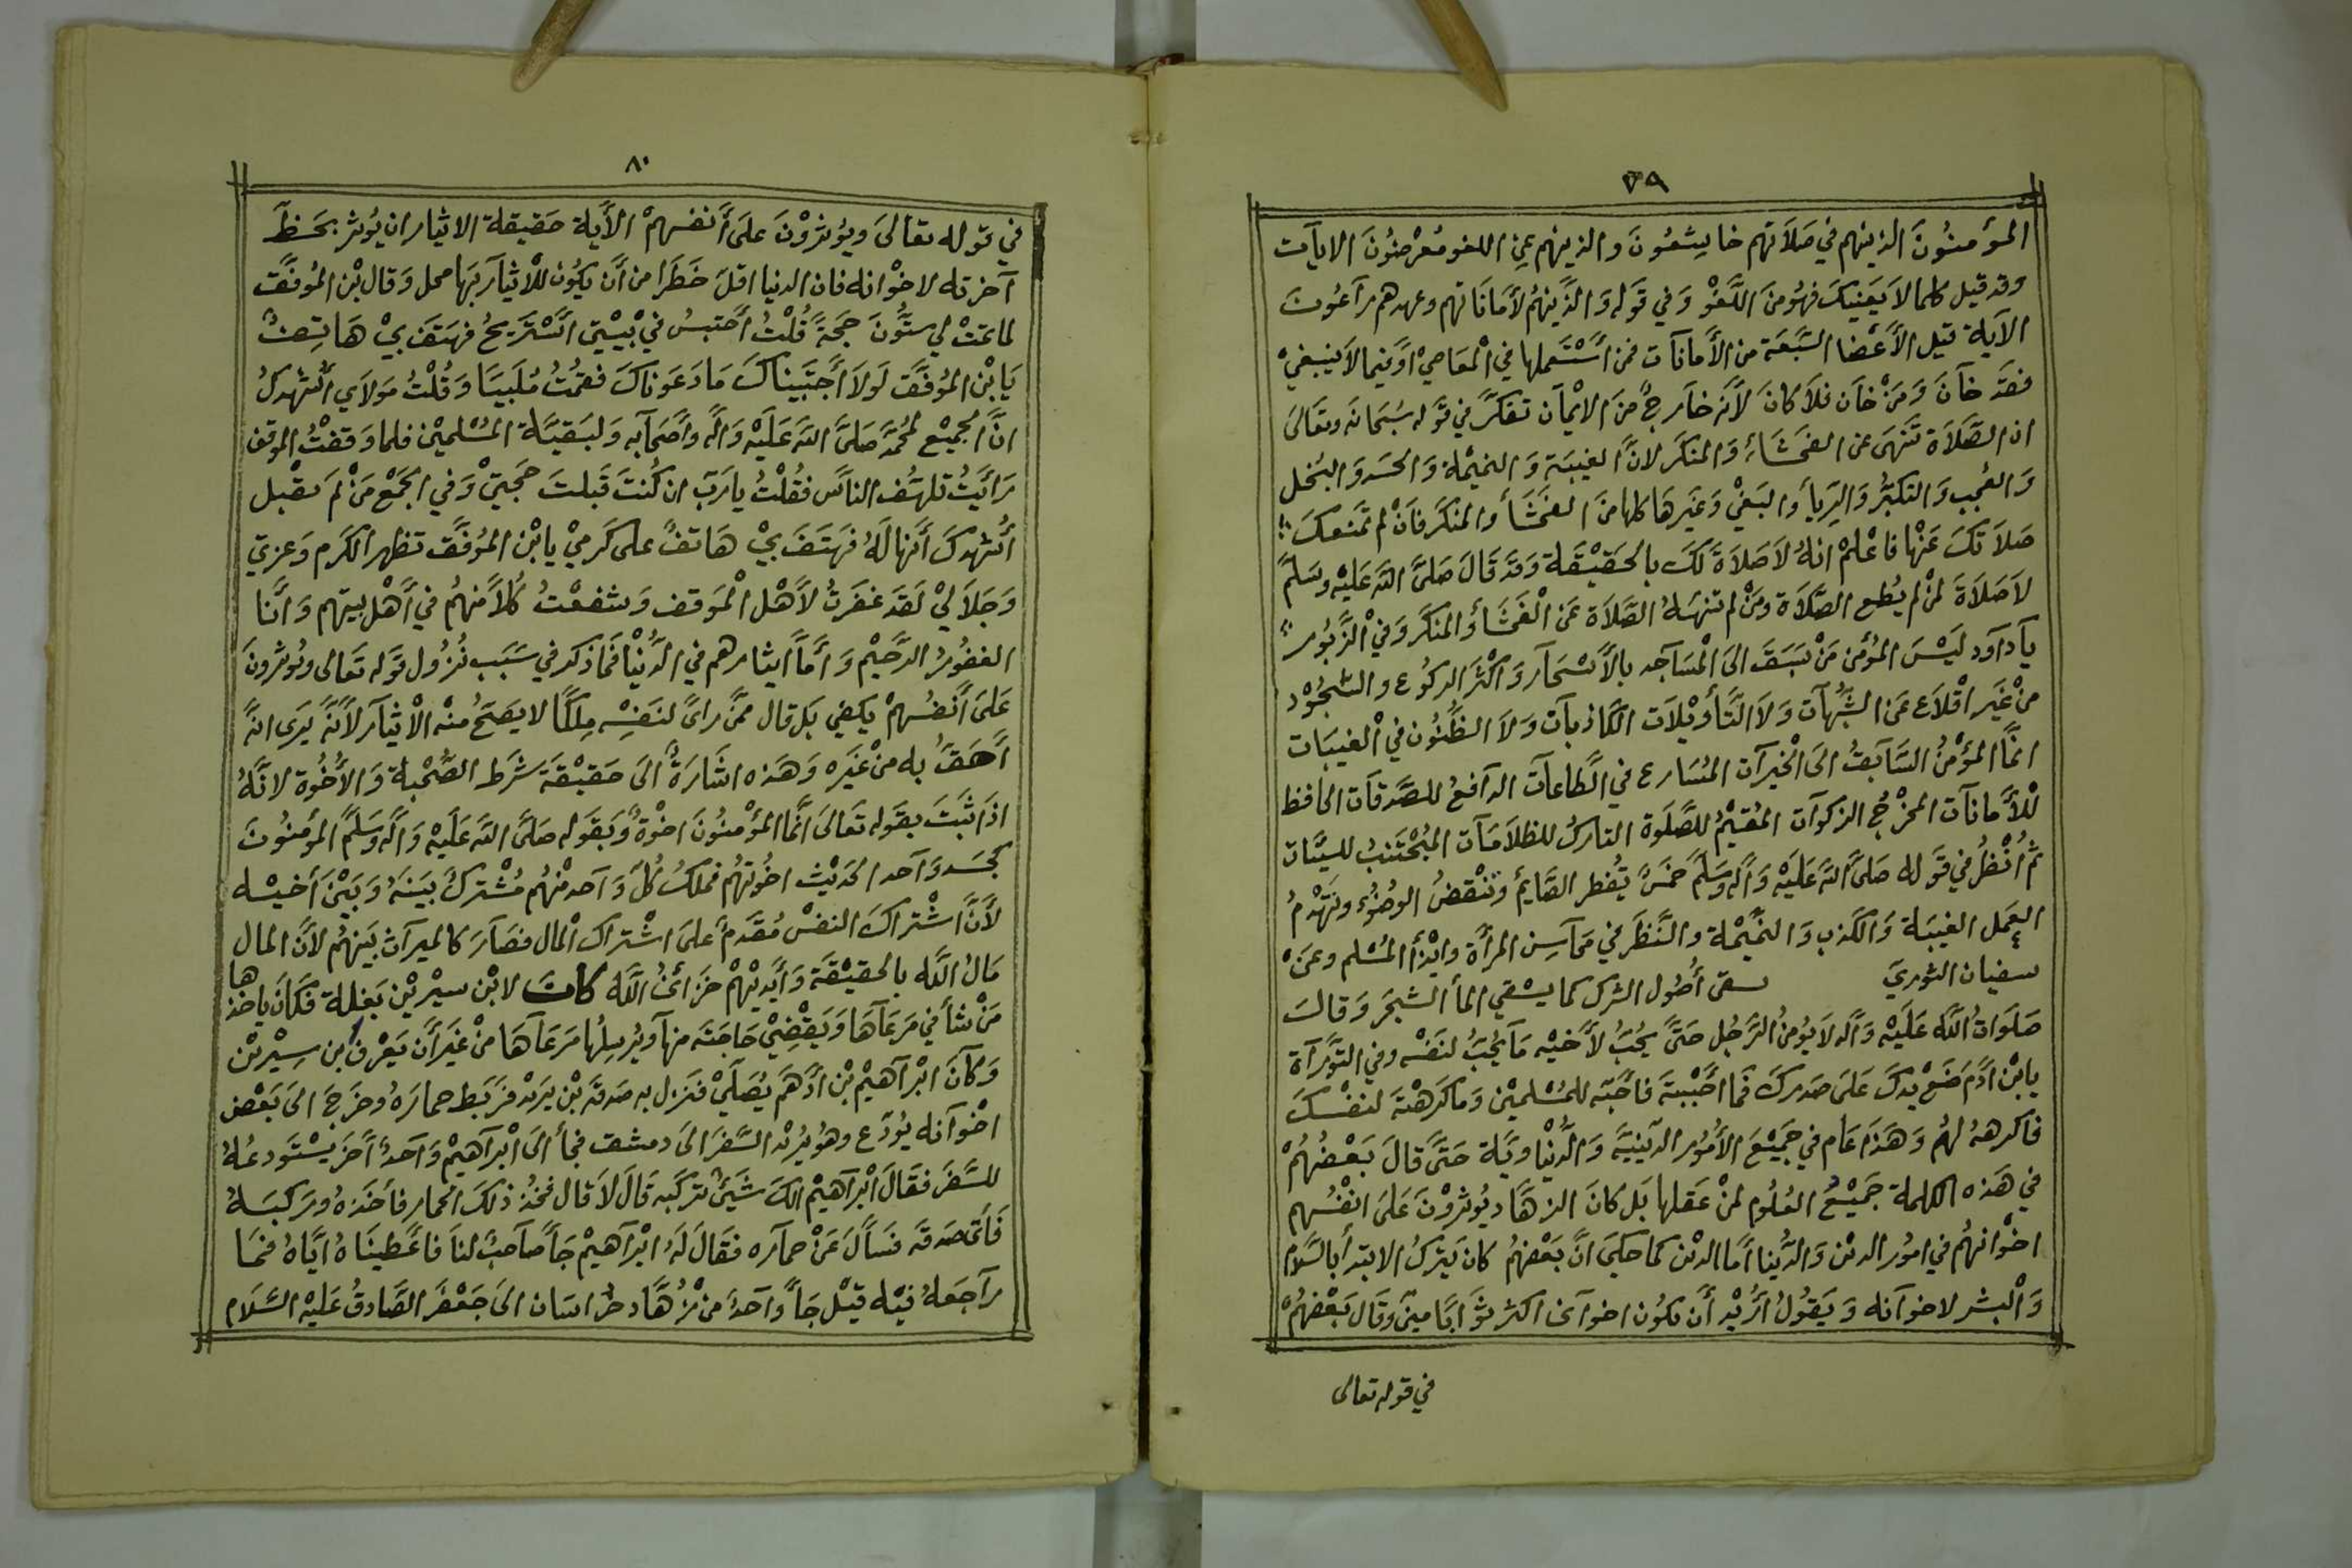 ٧٩
المؤمنون الذينهم في صلاتهم خاشعون والذينهم عن اللغو معرضون الايات
وقد قيل كلما لا يعنيك فهو من اللغو وفي قوله والذينهم لأماناتهم وعهدهم راعون
الآية قيل الأعضا السبعة من الأمانات فمن استعملها في المعاصي او فيما لا ينبغي
فقد خان ومن خان فلا كان لأنه خارج من الايمان تفكر في قوله سبحانه وتعالى
ان الصلاة تنهى عن الفحشاء والمنكر لان الغيبة والنميمة والحسد والبخل
والعجب والتكبر والريا والبغي وغيرها كلها من الفحشا والمنكر فان لم تمنعك
صلاتك عنها فاعلم انه لا صلاة لك بالحقيقة وقد قال صلى الله عليه وسلم
لا صلاة لمن لم يطع الصلاة ومن لم تنهه الصلاة عن الفحشا والمنكر وفي الزبور
يا داود ليس المؤمن من سبق الى المساجد بالأسحار واكثر الركوع والسجود
من غير اقلاع عن الشبهات ولا التأويلات الكاذبات ولا الظنون في الغيبات
انما المؤمن السابق الى الخيرات المسارع في الطاعات الدافع للصدقات الحافظ
للأمانات المخرج الزكوات المقيم للصلوة التارك للظلامات المجتنب للسيئات
ثم انظر في قوله صلى الله عليه وآله وسلم خمس تفطر الصايم وتنقض الوضوء وتهدم
العمل الغيبة والكذب والنميمة والنظر في محاسن المرأة وايذأ المسلم وعن
سفيان الثوري سقى أصول الشرك كما يسقي المأ الشجر وقال
صلوات الله عليه وآله لا يؤمن الرجل حتى يحب لأخيه ما يحب لنفسه وفي التوراة
يابن ادم ضع يدك على صدرك فما احببته فاحبه للمسلمين وما كرهته لنفسك
فاكرهه لهم وهذا عام في جميع الأمور الدينية والدنياوية حتى قال بعضهم
في هذه الكلمة جميع العلوم لمن عقلها بل كان الزهاد يؤثرون على انفسهم
اخوانهم في امور الدين والدنيا اما الدين كما حكي ان بعضهم كان يترك الابتدأ بالسلام
والبشر لاخوانه ويقول أريد أن يكون اخواني اكثر ثوابا مني وقال بعضهم
في قوله تعالى
٨٠
في قوله تعالى ويؤثرون على أنفسهم الأية حقيقة الايثار ان يؤثر بحظ
آخرته لاخوانه فان الدنيا اقل خطرا من أن يكون للأيثار بها محل وقال بن الموفق
لما تمت لي ستون حجة قلت أحتبس في بيتي استريح فهتف بي هاتف
يابن الموفق لولا أجتبيناك ما دعوناك فقمت ملبيا وقلت مولاي أشهدك
ان الجميع لمحمد صلى الله عليه وآله وأصحابه ولبقية المسلمين فلما وقفت الموقف
رأيت تلهف الناس فقلت يا رب ان كنت قبلت حجتي وفي الجمع من لم يقبل
أشهدك أنها له فهتف بي هاتف على كرمي يابن الموفق تظهر الكرم وعزتي
وجلالي لقد غفرت لأهل الموقف وشفعت كلا منهم في أهل بيتهم وأنا
الغفور الرحيم وأما ايثارهم في الدنيا فما ذكر في سبب نزول قوله تعالى ويؤثرون
على أنفسهم يكفي بل قال ممن راى لنفسه ملكا لا يصح منه الأيثار لأنه يرى انه
أحق به من غيره وهذه اشارة الى حقيقة شرط الصحبة والأخوة لانه
اذا ثبت بقوله تعالى انما المؤمنون اخوة وبقوله صلى الله عليه وآله وسلم المؤمنون
كجسد واحد الحديث اخوتهم فملك كل واحد منهم مشترك بينه وبين أخيه
لأن اشتراك النفس مقدم على اشتراك المال فصار كالميراث بينهم لأن المال
مال الله بالحقيقة وأيديهم خزائن الله كانت لابن سيرين بغلة فكان ياخذها
من شأ في مرعاها ويقضي حاجته منها ويرسلها مرعاها من غير أن يعرف بن سيرين
وكان ابراهيم بن أدهم يصلي فنزل به صدقه بن يزيد فربط حماره وخرج الى بعض
اخوانه يودع وهو يريد السفر الى دمشق فجأ الى ابراهيم واحد آخر يستودعه
للسفر فقال ابراهيم الك شيئ تركبه قال لا قال فخذ ذلك الحمار فاخذه وركبه
فأتى صدقه فسأل عن حماره فقال له ابراهيم جأ صاحب لنا فاعطيناه اياه فما
راجعه فيه قيل جأ واحد من زهاد خراسان الى جعفر الصادق عليه السلام